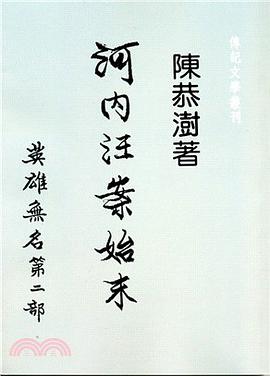 傳記文學叢刊
陳恭澍著
河內汪案始末
英雄無名第二部
三民